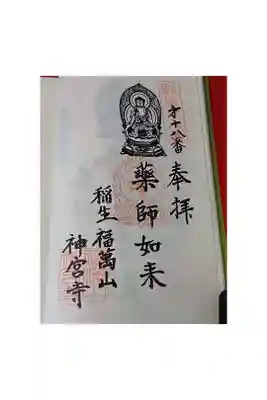 才十八番
奉拝
薬師如来
稲生 福萬山
神宮寺